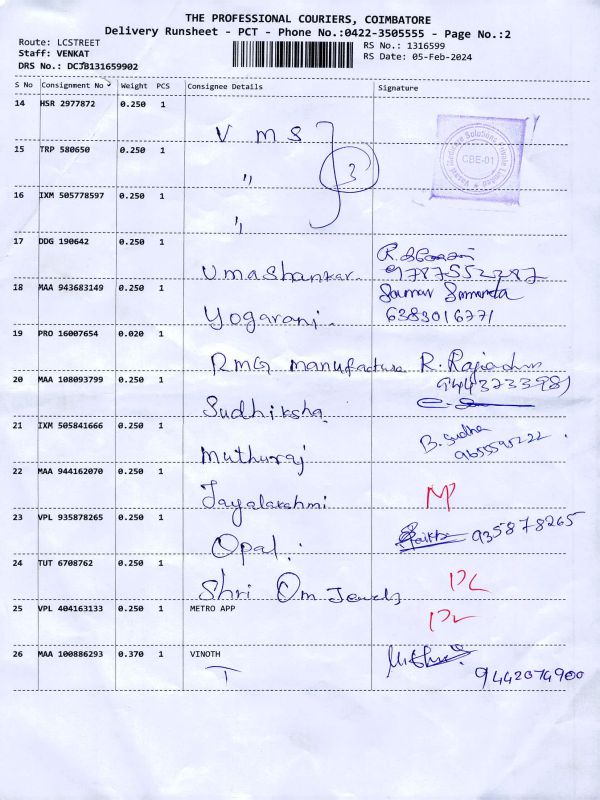 THE PROFESSIONAL COURIERS, COIMBATORE
Delivery Runsheet - PCT - Phone No.:0422-3505555 - Page No.:2
Route: LCSTREET
Staff: VENKAT
DRS No.: DCJB131659902
RS No.: 1316599
RS Date: 05-Feb-2024
S No Consignment No Weight PCS Consignee Details Signature
14 HSR 2977872 0.250 1 V M S
15 TRP 580650 0.250 1 " 3
16 IXM 505778597 0.250 1 "
CBE-01
17 DDG 190642 0.250 1 Umashankar
9787552287
18 MAA 943683149 0.250 1 Yogarani
6383016771
19 PRO 16007654 0.020 1 RMG manufacture R.
9443233981
20 MAA 108093799 0.250 1 Sudhiksha
21 IXM 505841666 0.250 1 Muthuraj B. Sudha
22 MAA 944162070 0.250 1 Jayalakshmi
23 VPL 935878265 0.250 1 Opal 935878265
24 TUT 6708762 0.250 1 Shri Om Jewels DL
25 VPL 404163133 0.250 1 METRO APP DL
26 MAA 100886293 0.370 1 VINOTH
9442074900